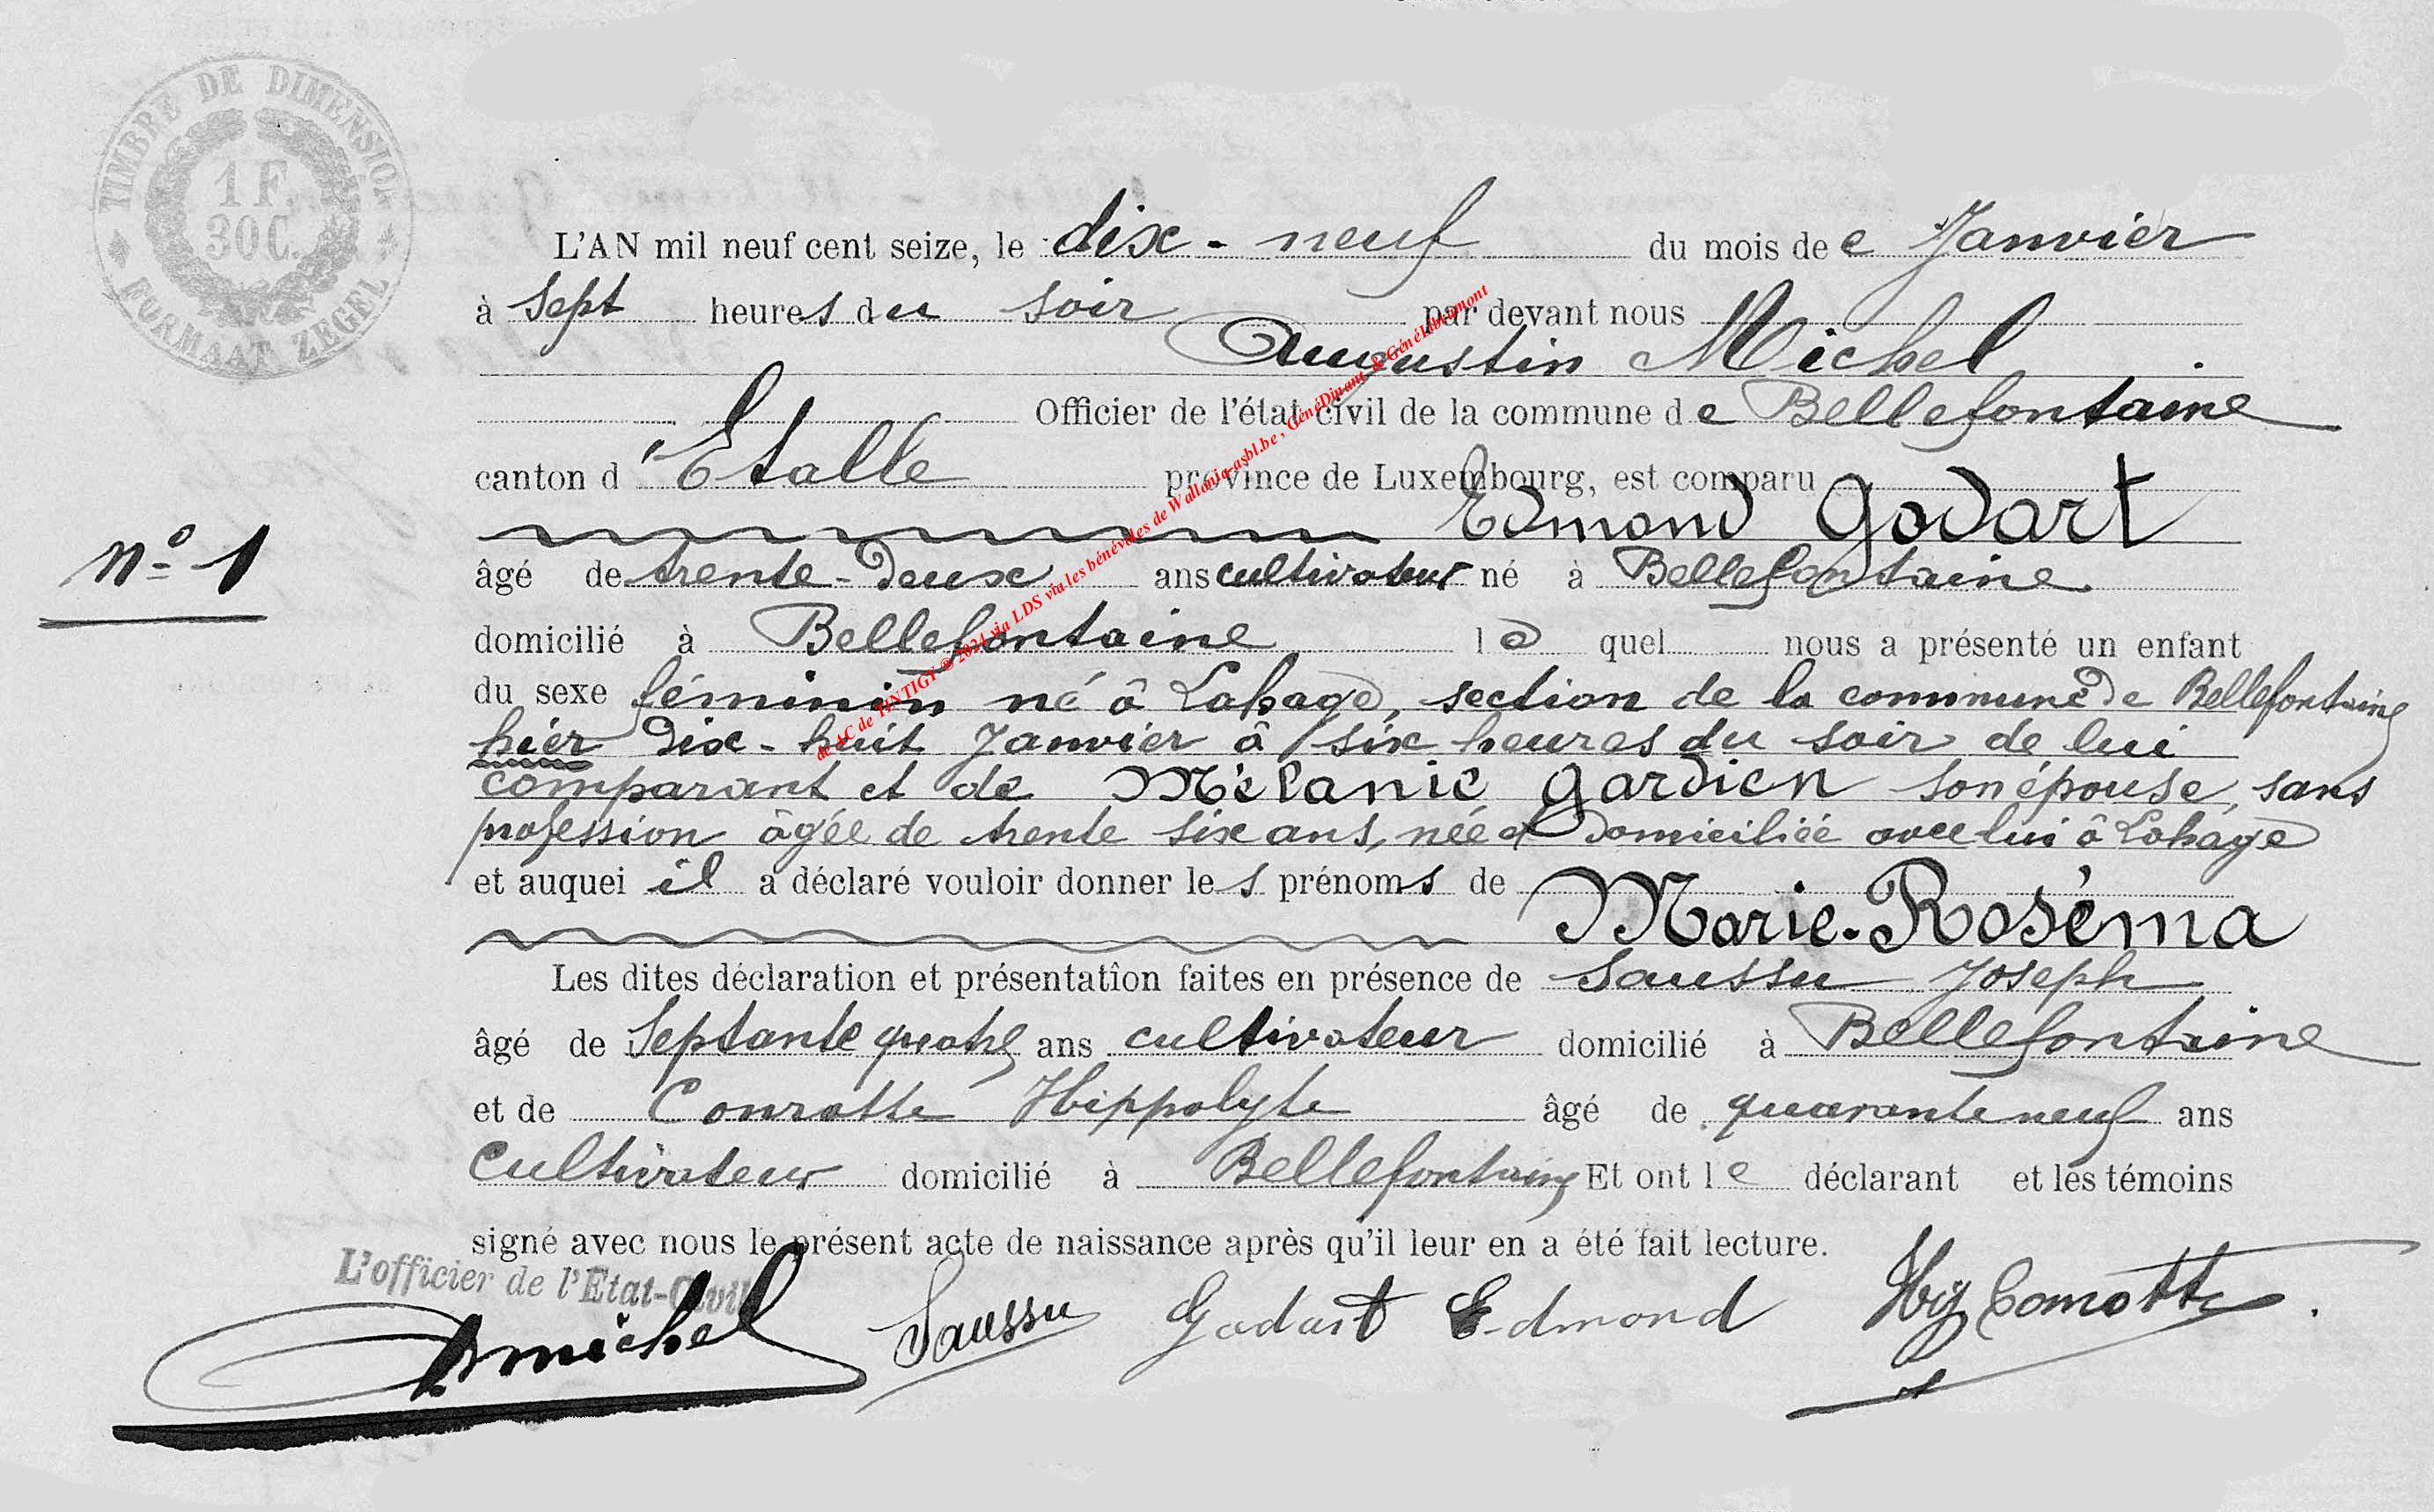 TIMBRE DE DIMENSION
1 F.
30 C.
FORMAAT ZEGEL
L'AN mil neuf cent seize, le dix-neuf du mois de e Janvier
à sept heures du soir par devant nous
Augustin Michel
Officier de l'état civil de la commune de Bellefontaine
canton d'Etalle province de Luxembourg, est comparu
Edmond Godart
nº 1
âgé de trente-deux ans cultivateur né à Bellefontaine
domicilié à Bellefontaine le quel nous a présenté un enfant
du sexe féminin né à Lahage, section de la commune de Bellefontaine
hier dix-huit Janvier à six heures du soir de lui
comparant et de Mélanie Gardien son épouse, sans
profession âgée de trente six ans, née et domiciliée avec lui à Lahage
et auquel il a déclaré vouloir donner les prénoms de
Marie-Roséma
Les dites déclaration et présentation faites en présence de Saussu Joseph
âgé de septante quatre ans cultivateur domicilié à Bellefontaine
et de Conrotte Hippolyte âgé de quarante neuf ans
cultivateur domicilié à Bellefontaine Et ont le déclarant et les témoins
signé avec nous le présent acte de naissance après qu'il leur en a été fait lecture.
L'officier de l'Etat-Civil
AMichel Saussu Godart Edmond Hip Conrotte
de AC de TINTIGI © 2024 via LDS via les bénévoles de Wallonia-asbl.be, GénéDinant & GénéLibramont